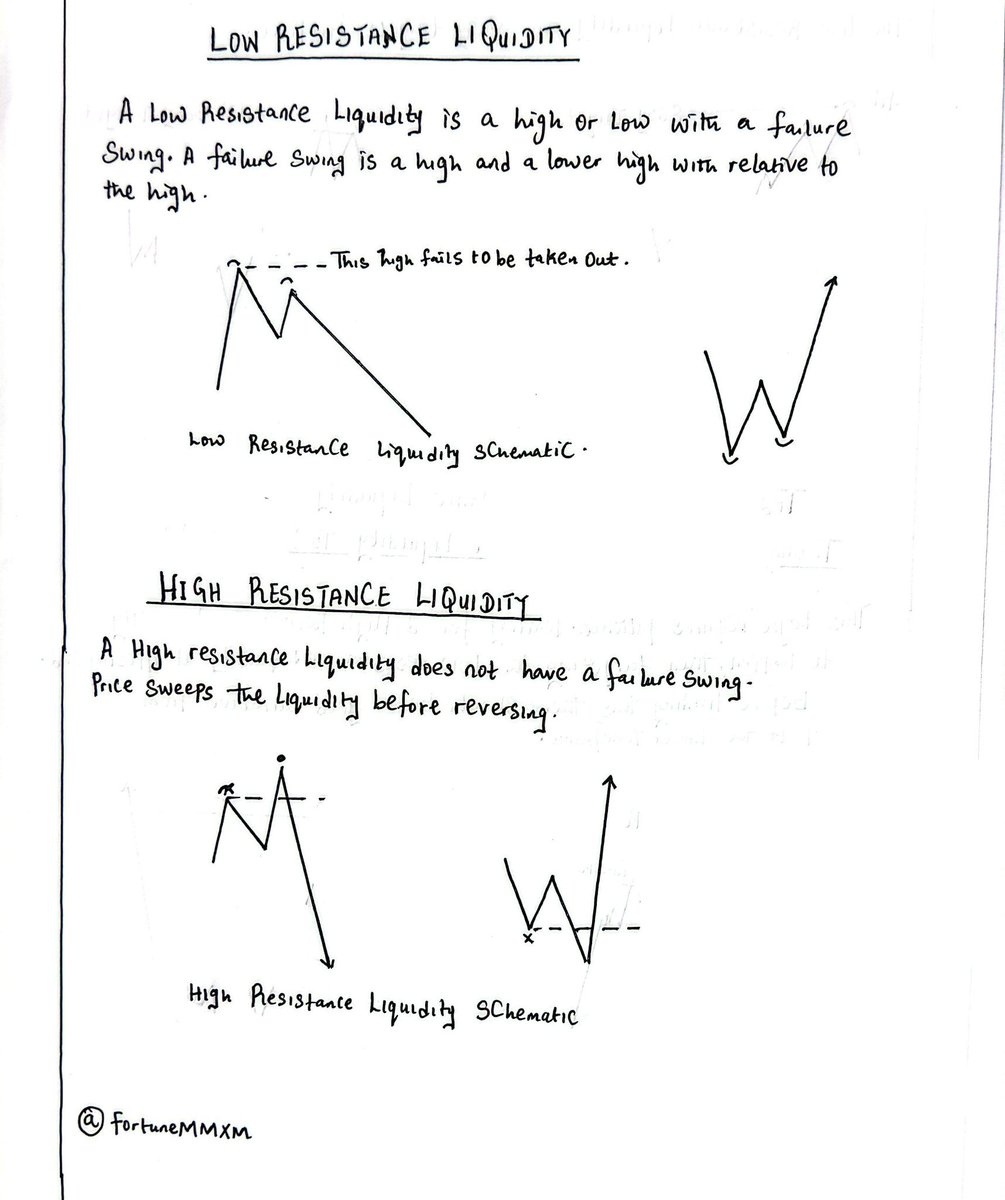 LOW RESISTANCE LIQUIDITY
A Low Resistance Liquidity is a high or Low with a failure
Swing. A failure Swing is a high and a lower high with relative to
the high.
This high fails to be taken out.
Low Resistance Liquidity Schematic.
HIGH RESISTANCE LIQUIDITY
A High resistance Liquidity does not have a failure Swing.
Price Sweeps the Liquidity before reversing.
High Resistance Liquidity SChematic
@fortuneMMXM